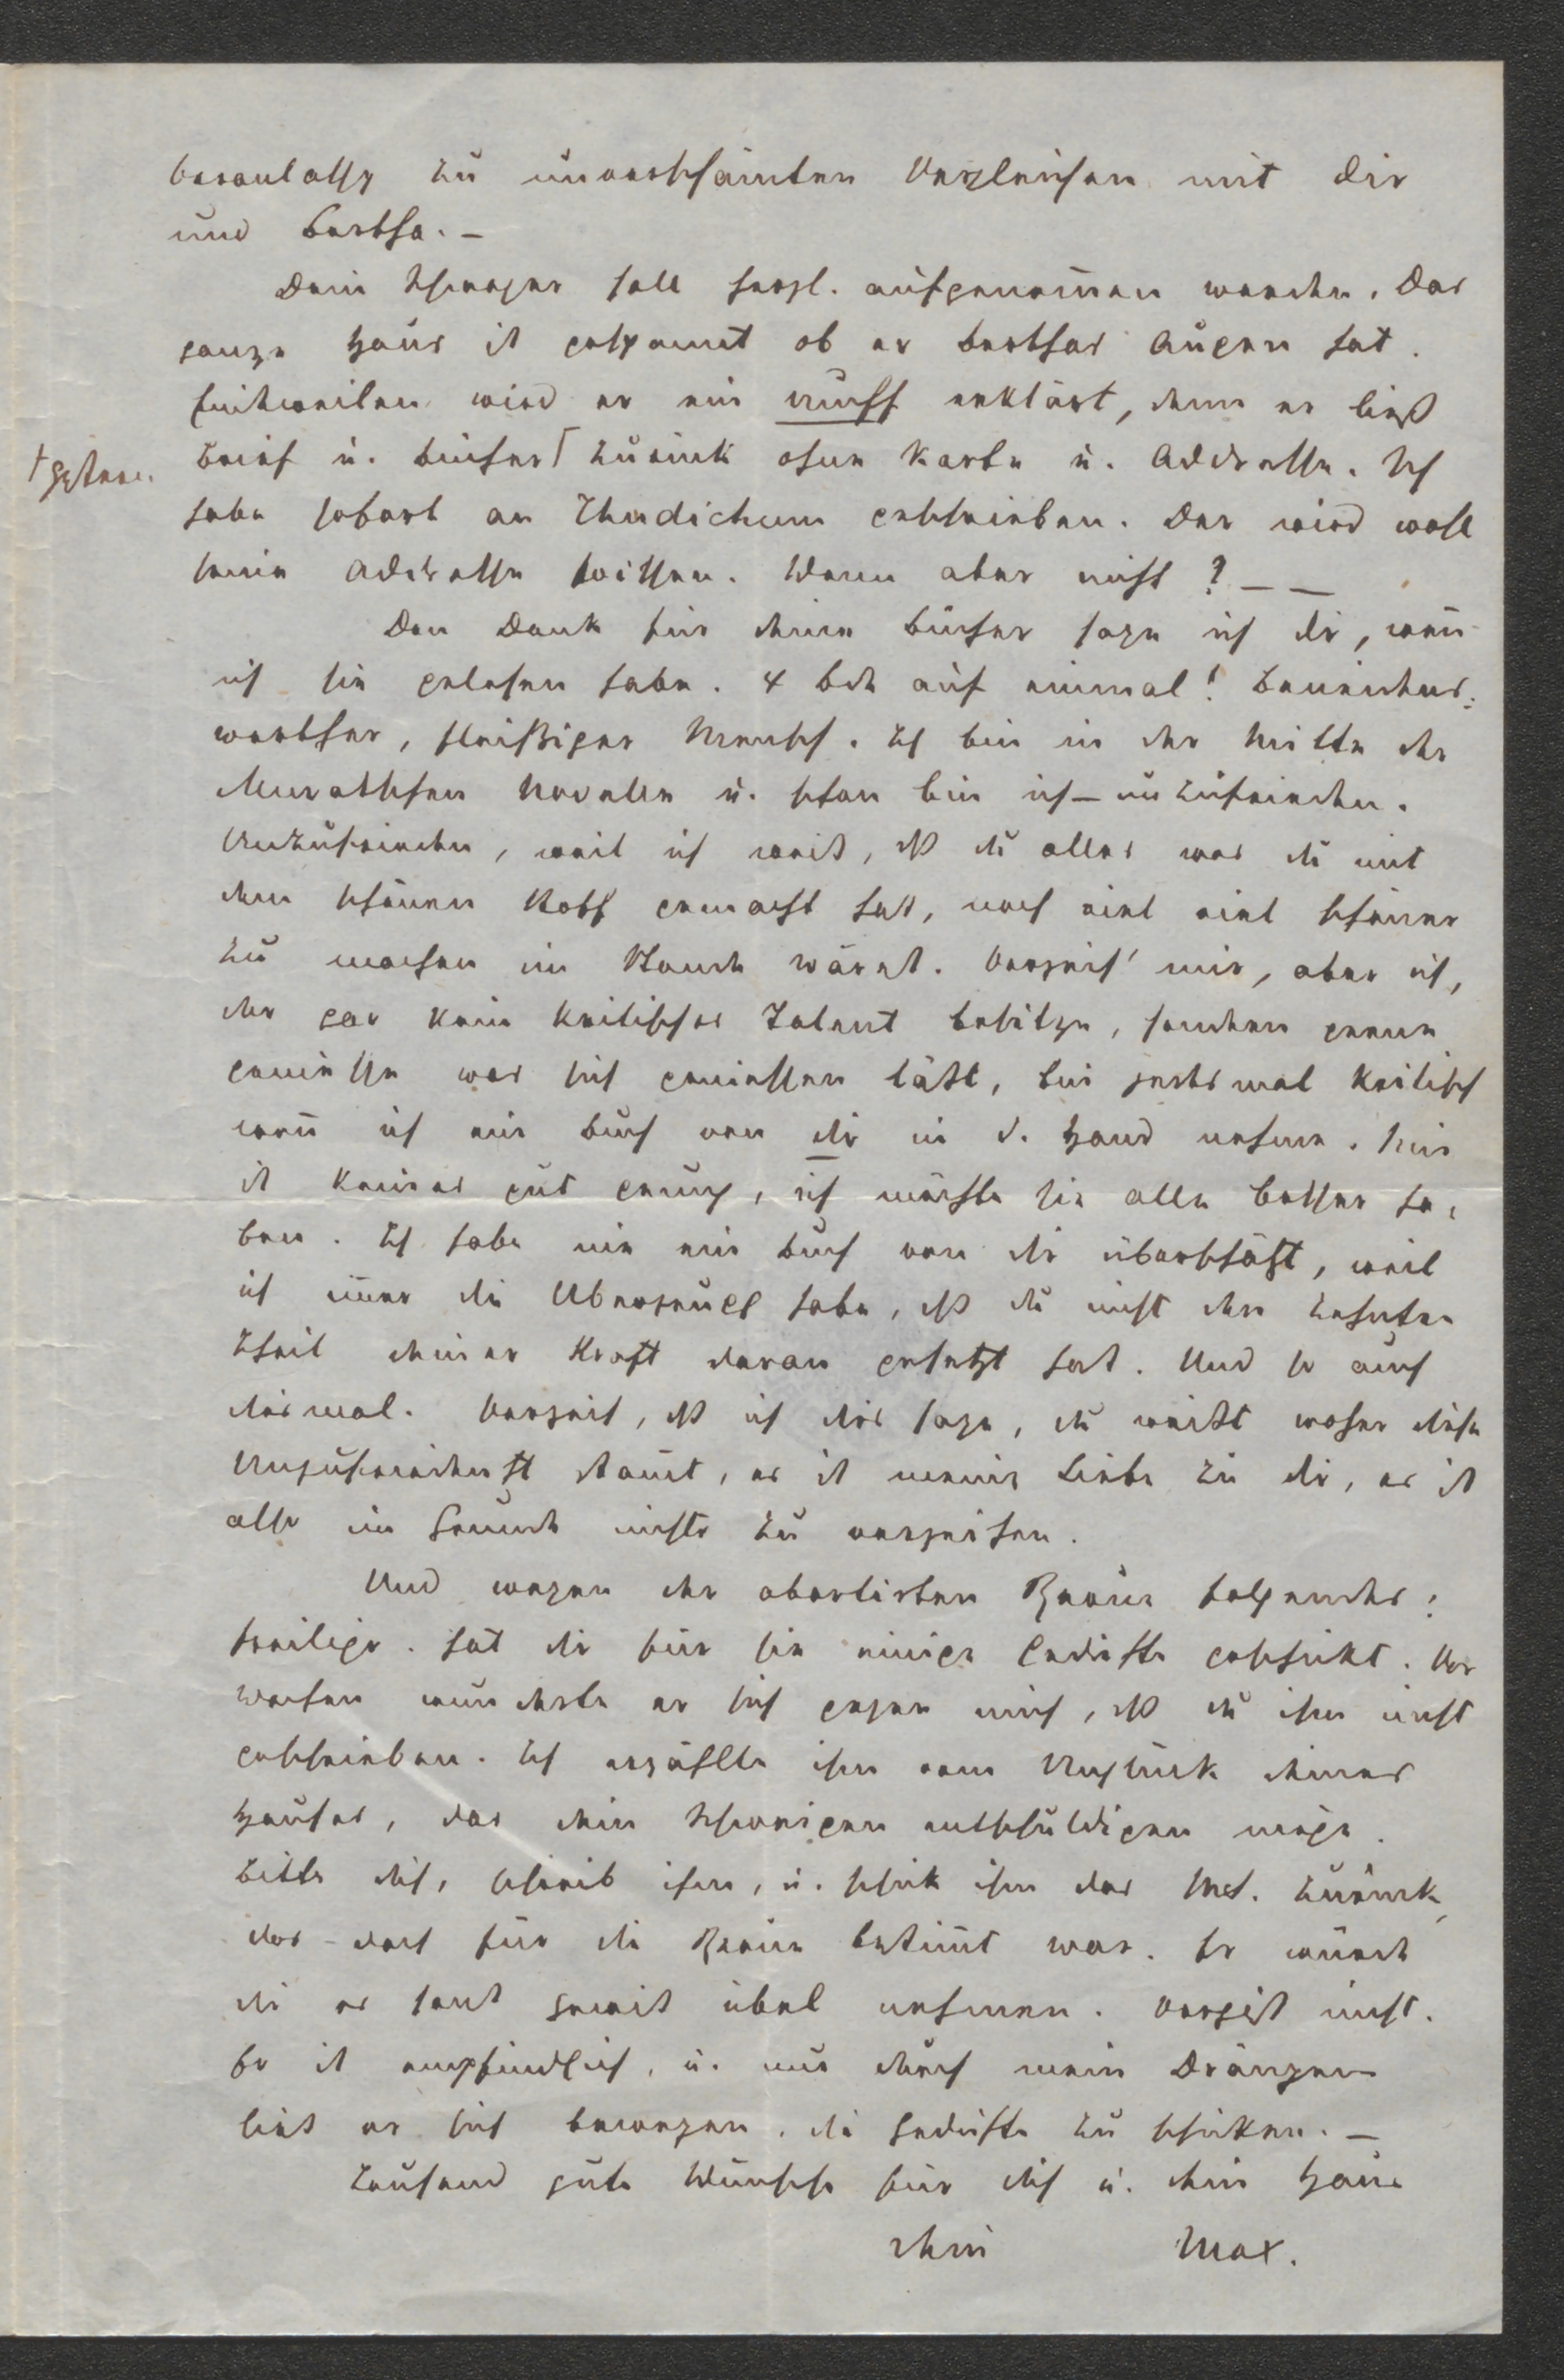 Veranlassg zu unverschämten Vergleichen mit dir
und Bertha. –
Dein Schwager soll herzl. aufgenom̅en werden. Das
ganze Haus ist gespannt ob er Berthas Augen hat.
Einstweilen wird er ein Mensch erklärt, denn er ließ
Brief u. Bücher ⌈ zurück ohne Karte u. Addresse. Ich
+ gestern
habe sofort an Thudichum geschrieben. Der wird wohl
seine Addresse wissen. Wenn aber nicht? – –
Den Dank für deine Bücher sage ich dir, wen̅
ich sie gelesen habe. 4 Bde auf einmal! Beneidens-
werther, fleißiger Mensch. Ich bin in der Mitte der
Novelle u. schon bin ich – unzufrieden.
Unzufrieden, weil ich weiß, dß du alles was du mit
dem schönen Stoff gemacht hast, noch viel viel schöner
zu machen im Stande wärest. Verzeih' mir, aber ich,
der gar kein kritisches Talent besitze, sondern gerne
geniesse was sich geniessen läßt, bin jedesmal kritisch
wen̅ ich ein Buch von dir in d. Hand nehme. Mir
ist keines gut genug, ich möchte sie alle besser ha-
ben. Ich habe nie ein Buch von dir überschäzt, weil
ich im̅er die Uberzeugg habe, dß du nicht den zehnten
Theil deiner Kraft daran gesetzt hast. Und so auch
diesmal. Verzeih, dß ich dies sage, du weißt woher diese
Unzufriedenht stam̅t, es ist meine Liebe zu dir, es ist
also im Grunde nichts zu verzeihen.
Und wegen der folgendes:
hat dir für sie einige Gedichte geschickt. Vor
Wochen wunderte er sich gegen mich, dß du ihm nicht
geschrieben. Ich erzählte ihm vom Unglück deines
Hauses, das dein Schweigen entschuldigen möge.
Bitte dich, schreib ihm, u. schick ihm das Mst. zurück,
das doch für die bestim̅t war. Er würde
dir es sonst gewiß übel nehmen. Vergiß nicht.
Er ist empfindlich, u. nur durch mein Drängen
ließ er sich bewegen, die Gedichte zu schicken. –
Tausend gute Wünsche für dich u. dein Haus
dein Max.